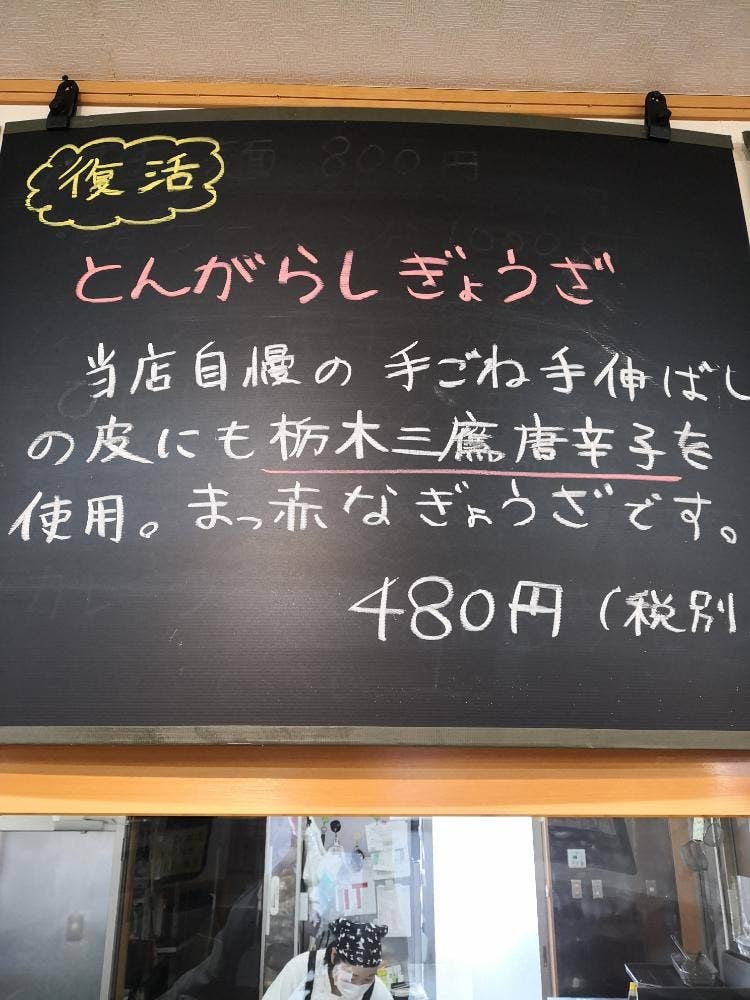 復活
とんがらしぎょうざ
当店自慢の手ごね手伸ばし
の皮にも栃木三鷹唐辛子を
使用。まっ赤なぎょうざです。
480円(税別